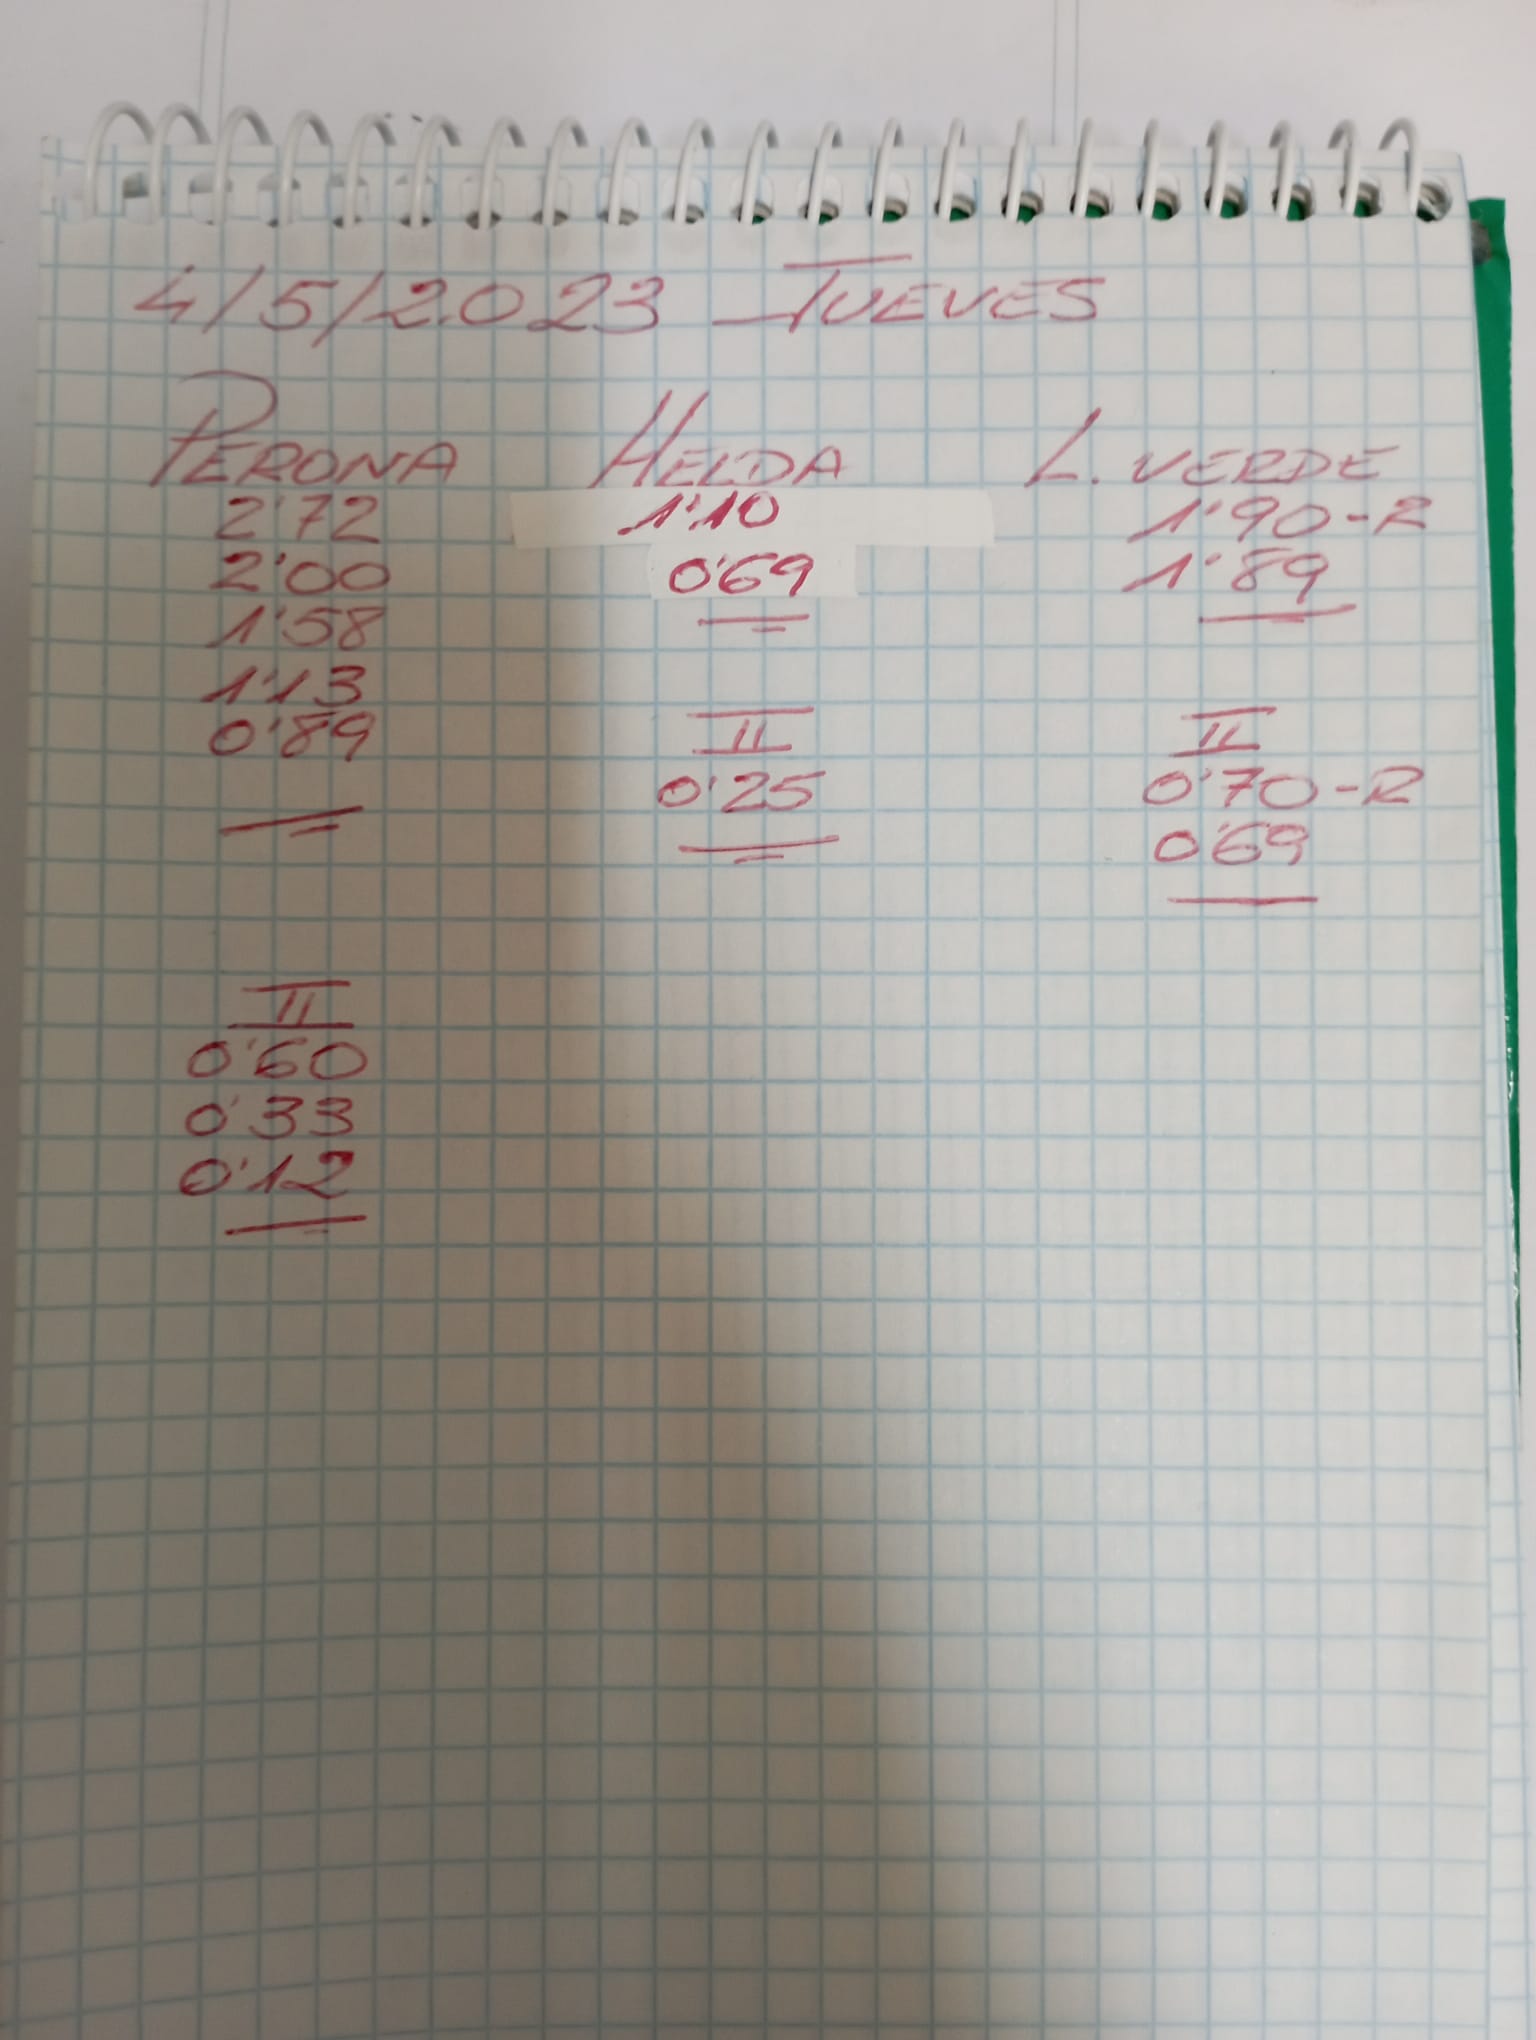 4/5/2.023 JUEVES
PERONA HELDA L. VERDE
2'72 1'10 1'90-R
2'00 0'69 1'89
1'58
1'13
0'89 II II
0'25 0'70-R
0'69
II
0'60
0'33
0'12